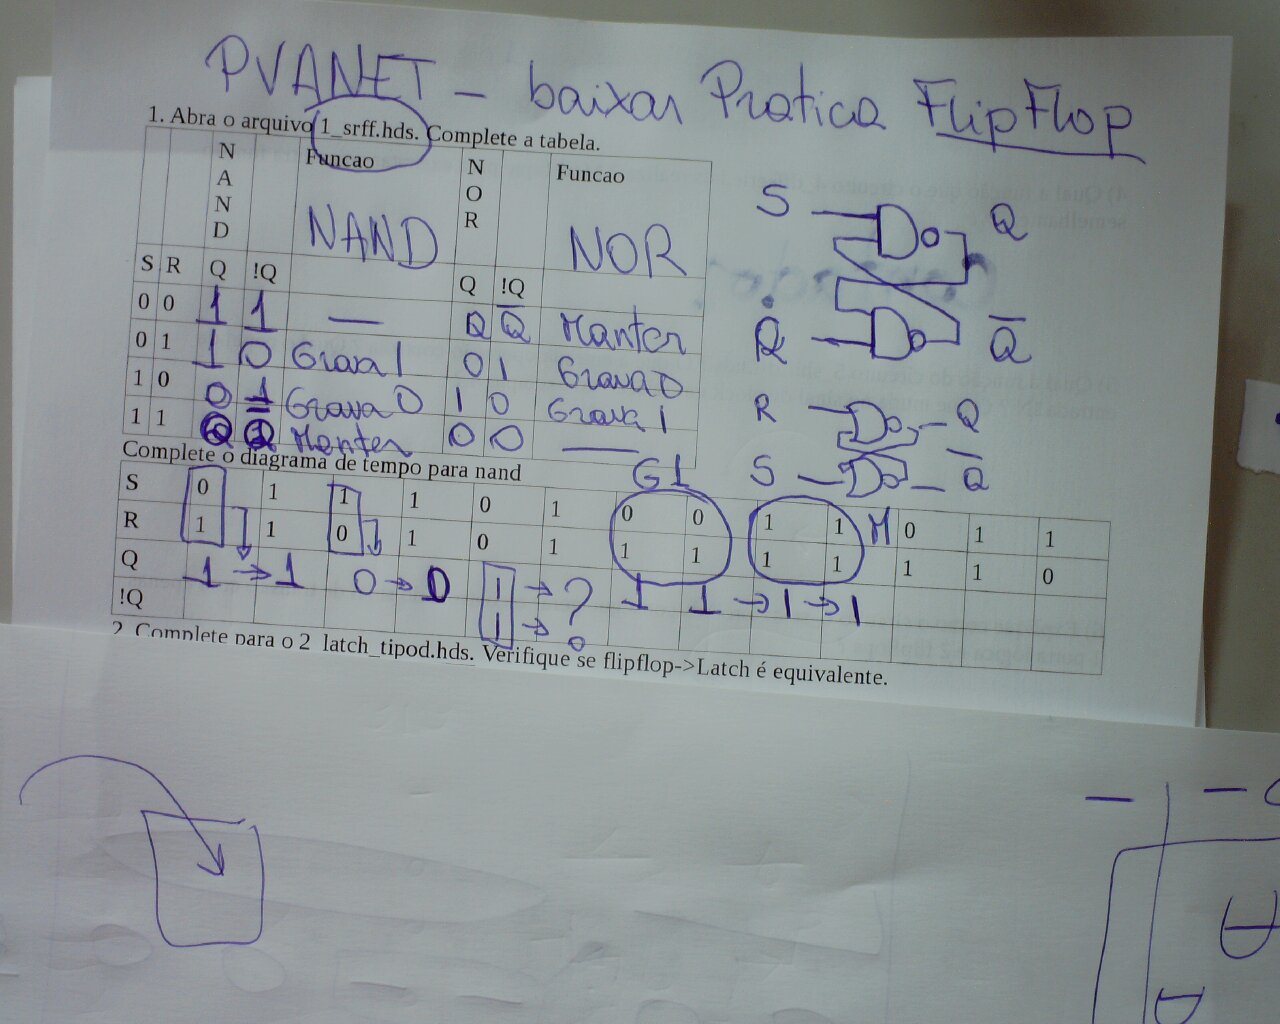 PVANET - baixar Pratica FlipFlop
1. Abra o arquivo 1_srff.hds. Complete a tabela.
NAND Funcao NOR Funcao
NAND NOR
S R Q !Q Q !Q
0 0 1 1 — Q Q̅ Manter
0 1 1 0 Grava 1 0 1 Grava 0
1 0 0 1 Grava 0 1 0 Grava 1
1 1 Q Q̅ Manter 0 0 —
S Q
R Q̅
R Q
S Q̅
Complete o diagrama de tempo para nand
G1
S 0 1 1 1 0 1 0 0 1 1 M 0 1 1
R 1 1 0 1 0 1 1 1 1 1 1 1 0
Q 1 → 1 0 → 0 1 → ? 1 1 → 1 → 1
!Q 1 →
2. Complete para o 2_latch_tipod.hds. Verifique se flipflop->Latch é equivalente.